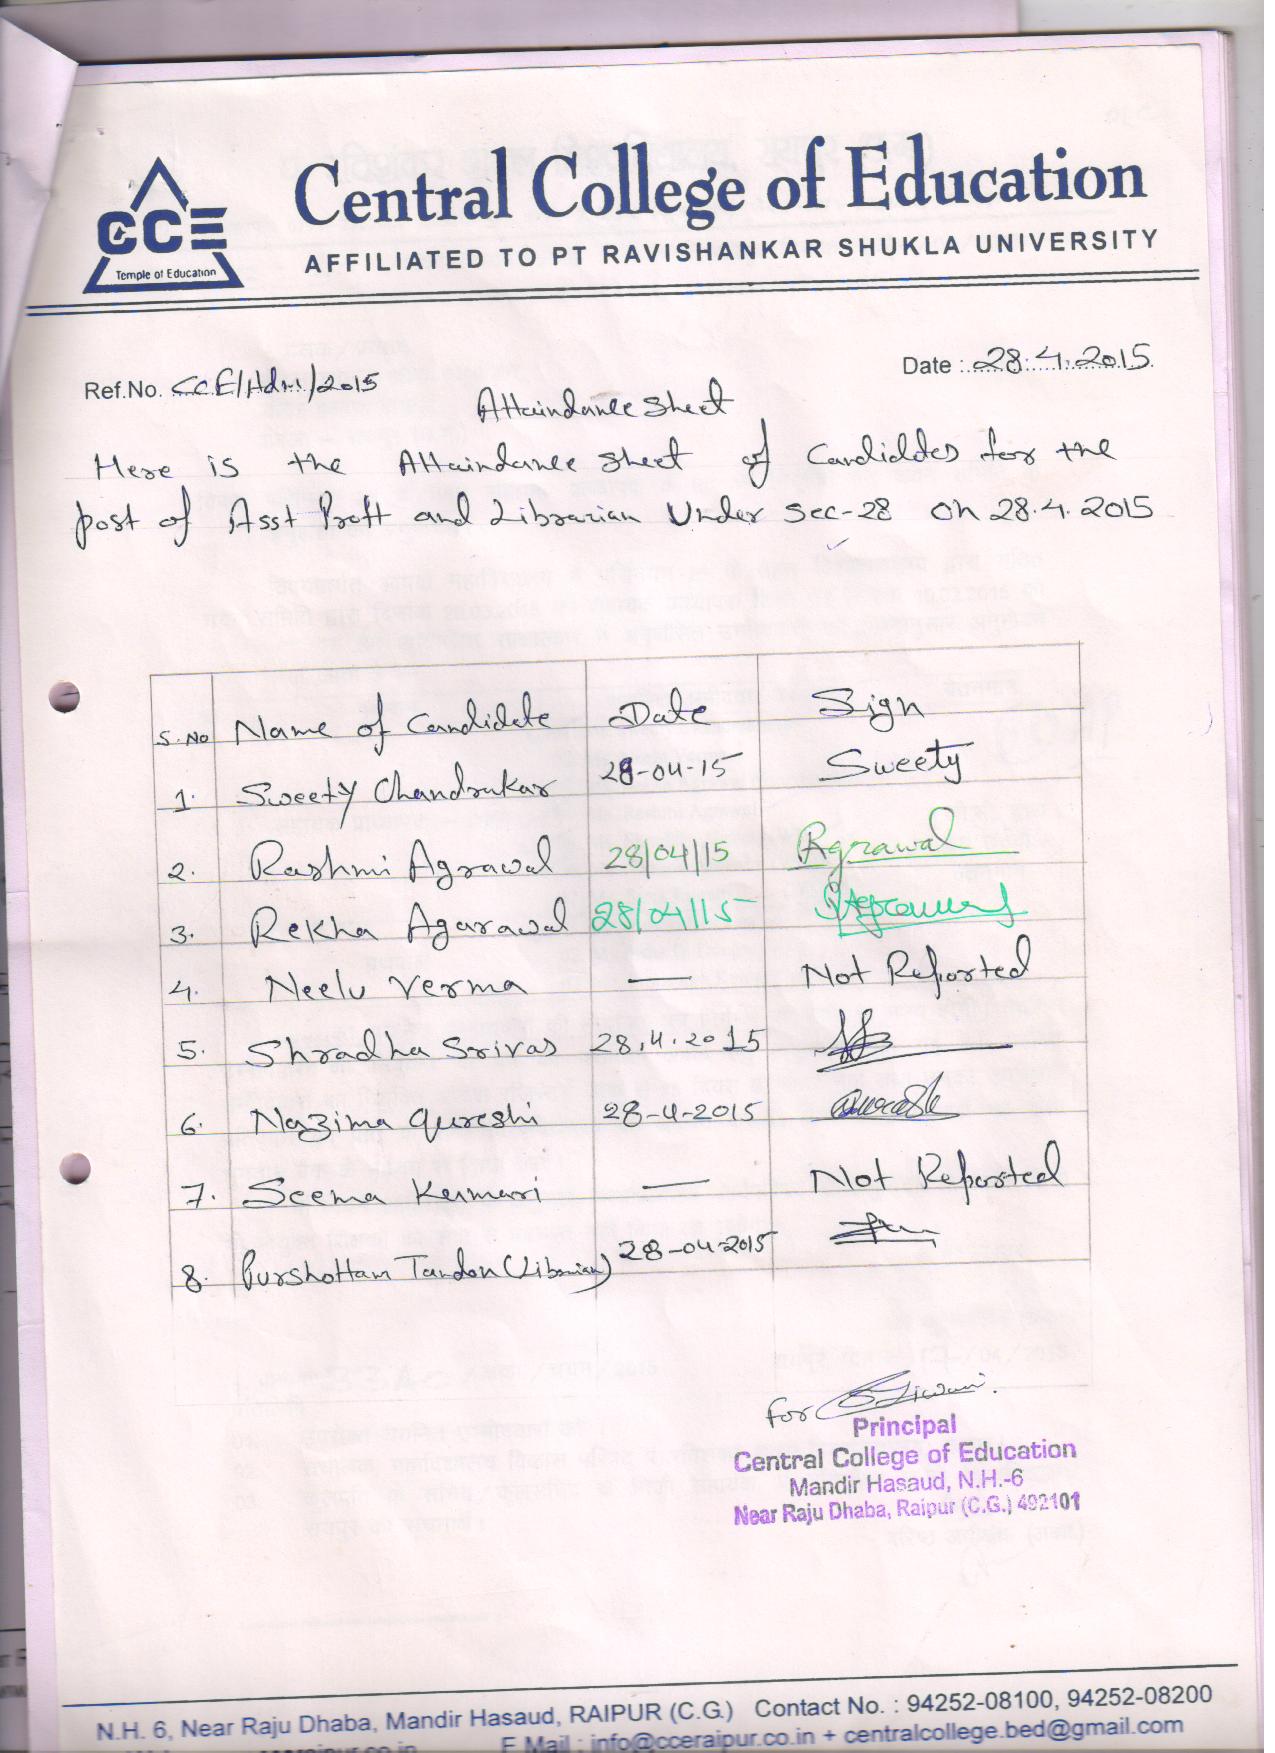 CCE
Temple of Education
Central College of Education
AFFILIATED TO PT RAVISHANKAR SHUKLA UNIVERSITY
Ref.No. CCE/Adm/2015
Date : 28.4.2015
Attaindance sheet
Here is the Attaindance sheet of Candiddtes for the
post of Asst Proft and Librarian Under sec-28 on 28.4.2015
S.No Name of Candidate Date Sign
1. Sweety Chandrakar 28-04-15 Sweety
2. Rashmi Agrawal 28/04/15 Agrawal
3. Rekha Agarawal 28/04/15
4. Neelu Verma — Not Reported
5. Shradha Srivas 28.4.2015
6. Nazima Qureshi 28-4-2015
7. Seema Kumari — Not Reported
8. Purshottam Tandon (Librarian) 28-04-2015
for
Principal
Central College of Education
Mandir Hasaud, N.H.-6
Near Raju Dhaba, Raipur (C.G.) 492101
N.H. 6, Near Raju Dhaba, Mandir Hasaud, RAIPUR (C.G.) Contact No. : 94252-08100, 94252-08200
E Mail : info@cceraipur.co.in + centralcollege.bed@gmail.com